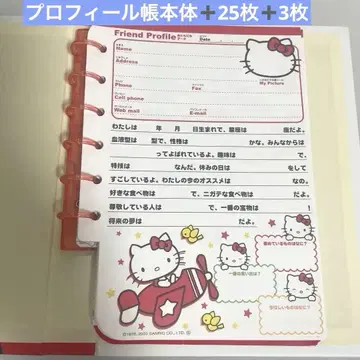 プロフィール帳本体➕25枚➕3枚
Friend Profile
Date
Name
Address
My Picture
Phone
Fax
Cell phone
Web mail
E-mail
わたしは 年 月 日生まれで、星座は 座だよ。
血液型は 型で、性格は かな、みんなからは
ってよばれているよ。趣味は で、
特技は なんだ。休みの日は をして
すごしているよ。わたしの今のオススメは なの。
好きな食べ物は で、ニガテな食べ物は だよ。
尊敬している人は で、一番の宝物は !
将来の夢は だよ。